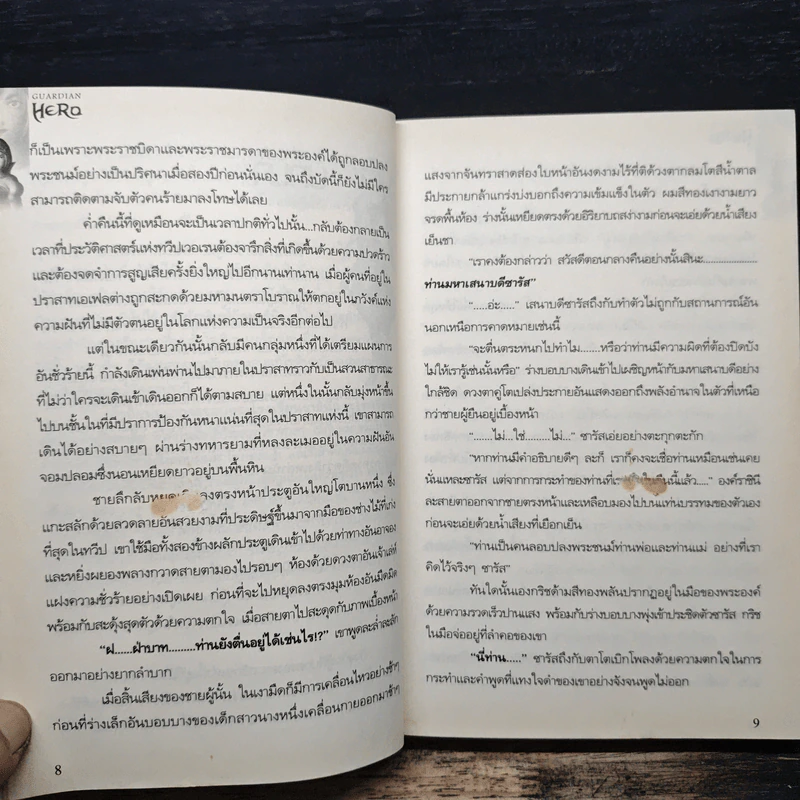 GUARDIAN
HERO
ก็เป็นเพราะพระราชบิดาและพระราชมารดาของพระองค์ได้ถูกลอบปลง
พระชนม์อย่างเป็นปริศนาเมื่อสองปีก่อนนั่นเอง จนถึงบัดนี้ก็ยังไม่มีใคร
สามารถติดตามจับตัวคนร้ายมาลงโทษได้เลย
ค่ำคืนนี้ที่ดูเหมือนจะเป็นเวลาปกติทั่วไปนั้น...กลับต้องกลายเป็น
เวลาที่ประวัติศาสตร์แห่งทวีปเวอเรนต้องจารึกสิ่งที่เกิดขึ้นด้วยความปวดร้าว
และต้องจดจำการสูญเสียครั้งยิ่งใหญ่ไปอีกนานเท่านาน เมื่อผู้คนที่อยู่ใน
ปราสาทเอเฟลต่างถูกสะกดด้วยมหามนตราโบราณให้ตกอยู่ในภวังค์แห่ง
ความฝันที่ไม่มีตัวตนอยู่ในโลกแห่งความเป็นจริงอีกต่อไป
แต่ในขณะเดียวกันนั้นกลับมีคนกลุ่มหนึ่งที่ได้เตรียมแผนการ
อันชั่วร้ายนี้ กำลังเดินเพ่นพ่านไปมาภายในปราสาทราวกับเป็นสวนสาธารณะ
ที่ไม่ว่าใครจะเดินเข้าเดินออกก็ได้ตามสบาย แต่หนึ่งในนั้นกลับมุ่งหน้าขึ้น
ไปบนชั้นในที่มีปราการป้องกันหนาแน่นที่สุดในปราสาทแห่งนี้ เขาสามารถ
เดินได้อย่างสบายๆ ผ่านร่างทหารยามที่หลงละเมออยู่ในความฝันอัน
จอมปลอมซึ่งนอนเหยียดยาวอยู่บนพื้นหิน
ชายลึกลับหยุดเดินลงตรงหน้าประตูอันใหญ่โตบานหนึ่ง ซึ่ง
แกะสลักด้วยลวดลายอันสวยงามที่ประดิษฐ์ขึ้นมาจากมือของช่างไม้ที่เก่ง
ที่สุดในทวีป เขาใช้มือทั้งสองข้างผลักประตูเดินเข้าไปด้วยท่าทางอันอาจอง
และหยิ่งผยองพลางกวาดสายตามองไปรอบๆ ห้องด้วยดวงตาอันเจ้าเล่ห์ที่
แฝงความชั่วร้ายอย่างเปิดเผย ก่อนที่จะไปหยุดลงตรงมุมห้องอันมืดมิด
พร้อมกับสะดุ้งสุดตัวด้วยความตกใจ เมื่อสายตาไปสะดุดกับภาพเบื้องหน้า
“ฝ.....ฝ่าบาท.........ท่านยังตื่นอยู่ได้เช่นไร!?” เขาพูดละล่ำละลัก
ออกมาอย่างยากลำบาก
เมื่อสิ้นเสียงของชายผู้นั้น ในเงามืดก็มีการเคลื่อนไหวอย่างช้าๆ
ก่อนที่ร่างเล็กอันบอบบางของเด็กสาวนางหนึ่งเคลื่อนกายออกมาช้าๆ
8
แสงจากจันทราสาดส่องใบหน้าอันงดงามไร้ที่ติด้วงตากลมโตสีน้ำตาล
มีประกายกล้าแกร่งบ่งบอกถึงความเข้มแข็งในตัว ผมสีทองเงางามยาว
จรดพื้นห้อง ร่างนั้นเหยียดตรงด้วยอิริยาบถสง่างามก่อนจะเอ่ยด้วยน้ำเสียง
เย็นชา
“เราคงต้องกล่าวว่า สวัสดีตอนกลางคืนอย่างนั้นสินะ....................
ท่านมหาเสนาบดีซารัส”
“.....อ่ะ.....” เสนาบดีซารัสถึงกับทำตัวไม่ถูกกับสถานการณ์อัน
นอกเหนือการคาดหมายเช่นนี้
“จะตื่นตระหนกไปทำไม.......หรือว่าท่านมีความผิดที่ต้องปิดบัง
ไม่ให้เรารู้เช่นนั้นหรือ” ร่างบอบบางเดินเข้าไปเผชิญหน้ากับมหาเสนาบดีอย่าง
ใกล้ชิด ดวงตาคู่โตเปล่งประกายอันแสดงออกถึงพลังอำนาจในตัวที่เหนือ
กว่าชายผู้ยืนอยู่เบื้องหน้า
“.......ไม่...ใช่.........ไม่...” ซารัสเอ่ยอย่างตะกุกตะกัก
“หากท่านมีคำอธิบายดีๆ ละก็ เราก็คงจะเชื่อท่านเหมือนเช่นเคย
นั่นแหละซารัส แต่จากการกระทำของท่านที่เรา ในคืนนี้แล้ว....” องค์ราชินี
ละสายตาออกจากชายตรงหน้าและเหลือบมองไปบนแท่นบรรทมของตัวเอง
ก่อนจะเอ่ยด้วยน้ำเสียงที่เยือกเย็น
“ท่านเป็นคนลอบปลงพระชนม์ท่านพ่อและท่านแม่ อย่างที่เรา
คิดไว้จริงๆ ซารัส”
ทันใดนั้นเองกริชด้ามสีทองพลันปรากฏอยู่ในมือของพระองค์
ด้วยความรวดเร็วปานแสง พร้อมกับร่างบอบบางพุ่งเข้าประชิดตัวซารัส กริช
ในมือจ่ออยู่ที่ลำคอของเขา
“นี่ท่าน.....” ซารัสถึงกับตาโตเบิกโพลงด้วยความตกใจในการ
กระทำและคำพูดที่แทงใจดำของเขาอย่างจังจนพูดไม่ออก
9